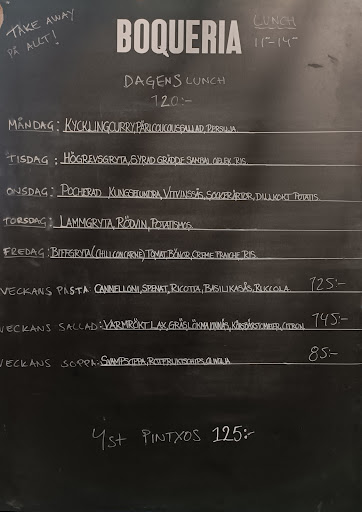 TAKE AWAY
PÅ ALLT!
BOQUERIA
LUNCH
11-14
DAGENS LUNCH
120:-
MÅNDAG: KYCKLINGCURRY, PÄRLCOUCOUSSALLAD, PERSILJA.
TISDAG: HÖGREVSGRYTA, SYRAD GRÄDDE, SAMBAL OELEK, RIS.
ONSDAG: POCHERAD KUNGSFLUNDRA, VITVINSSÅS, SOCKERÄRTOR, DILLKOKT POTATIS.
TORSDAG: LAMMGRYTA, RÖDVIN, POTATISMOS.
FREDAG: BIFFGRYTA (CHILI CON CARNE), TOMAT, BÖNOR, CREME FRAICHE, RIS.
VECKANS PASTA: CANNELLONI, SPENAT, RICOTTA, BASILIKASÅS, RUCCOLA. 125:-
VECKANS SALLAD: VARMRÖKT LAX, GRÄSLÖKMAJONNÄS, KÖRSBÄRSTOMATER, CITRON. 145:-
VECKANS SOPPA: SVAMPSOPPA, ROTFRUKTSCHIPS, 85:-
4st PINTXOS 125:-